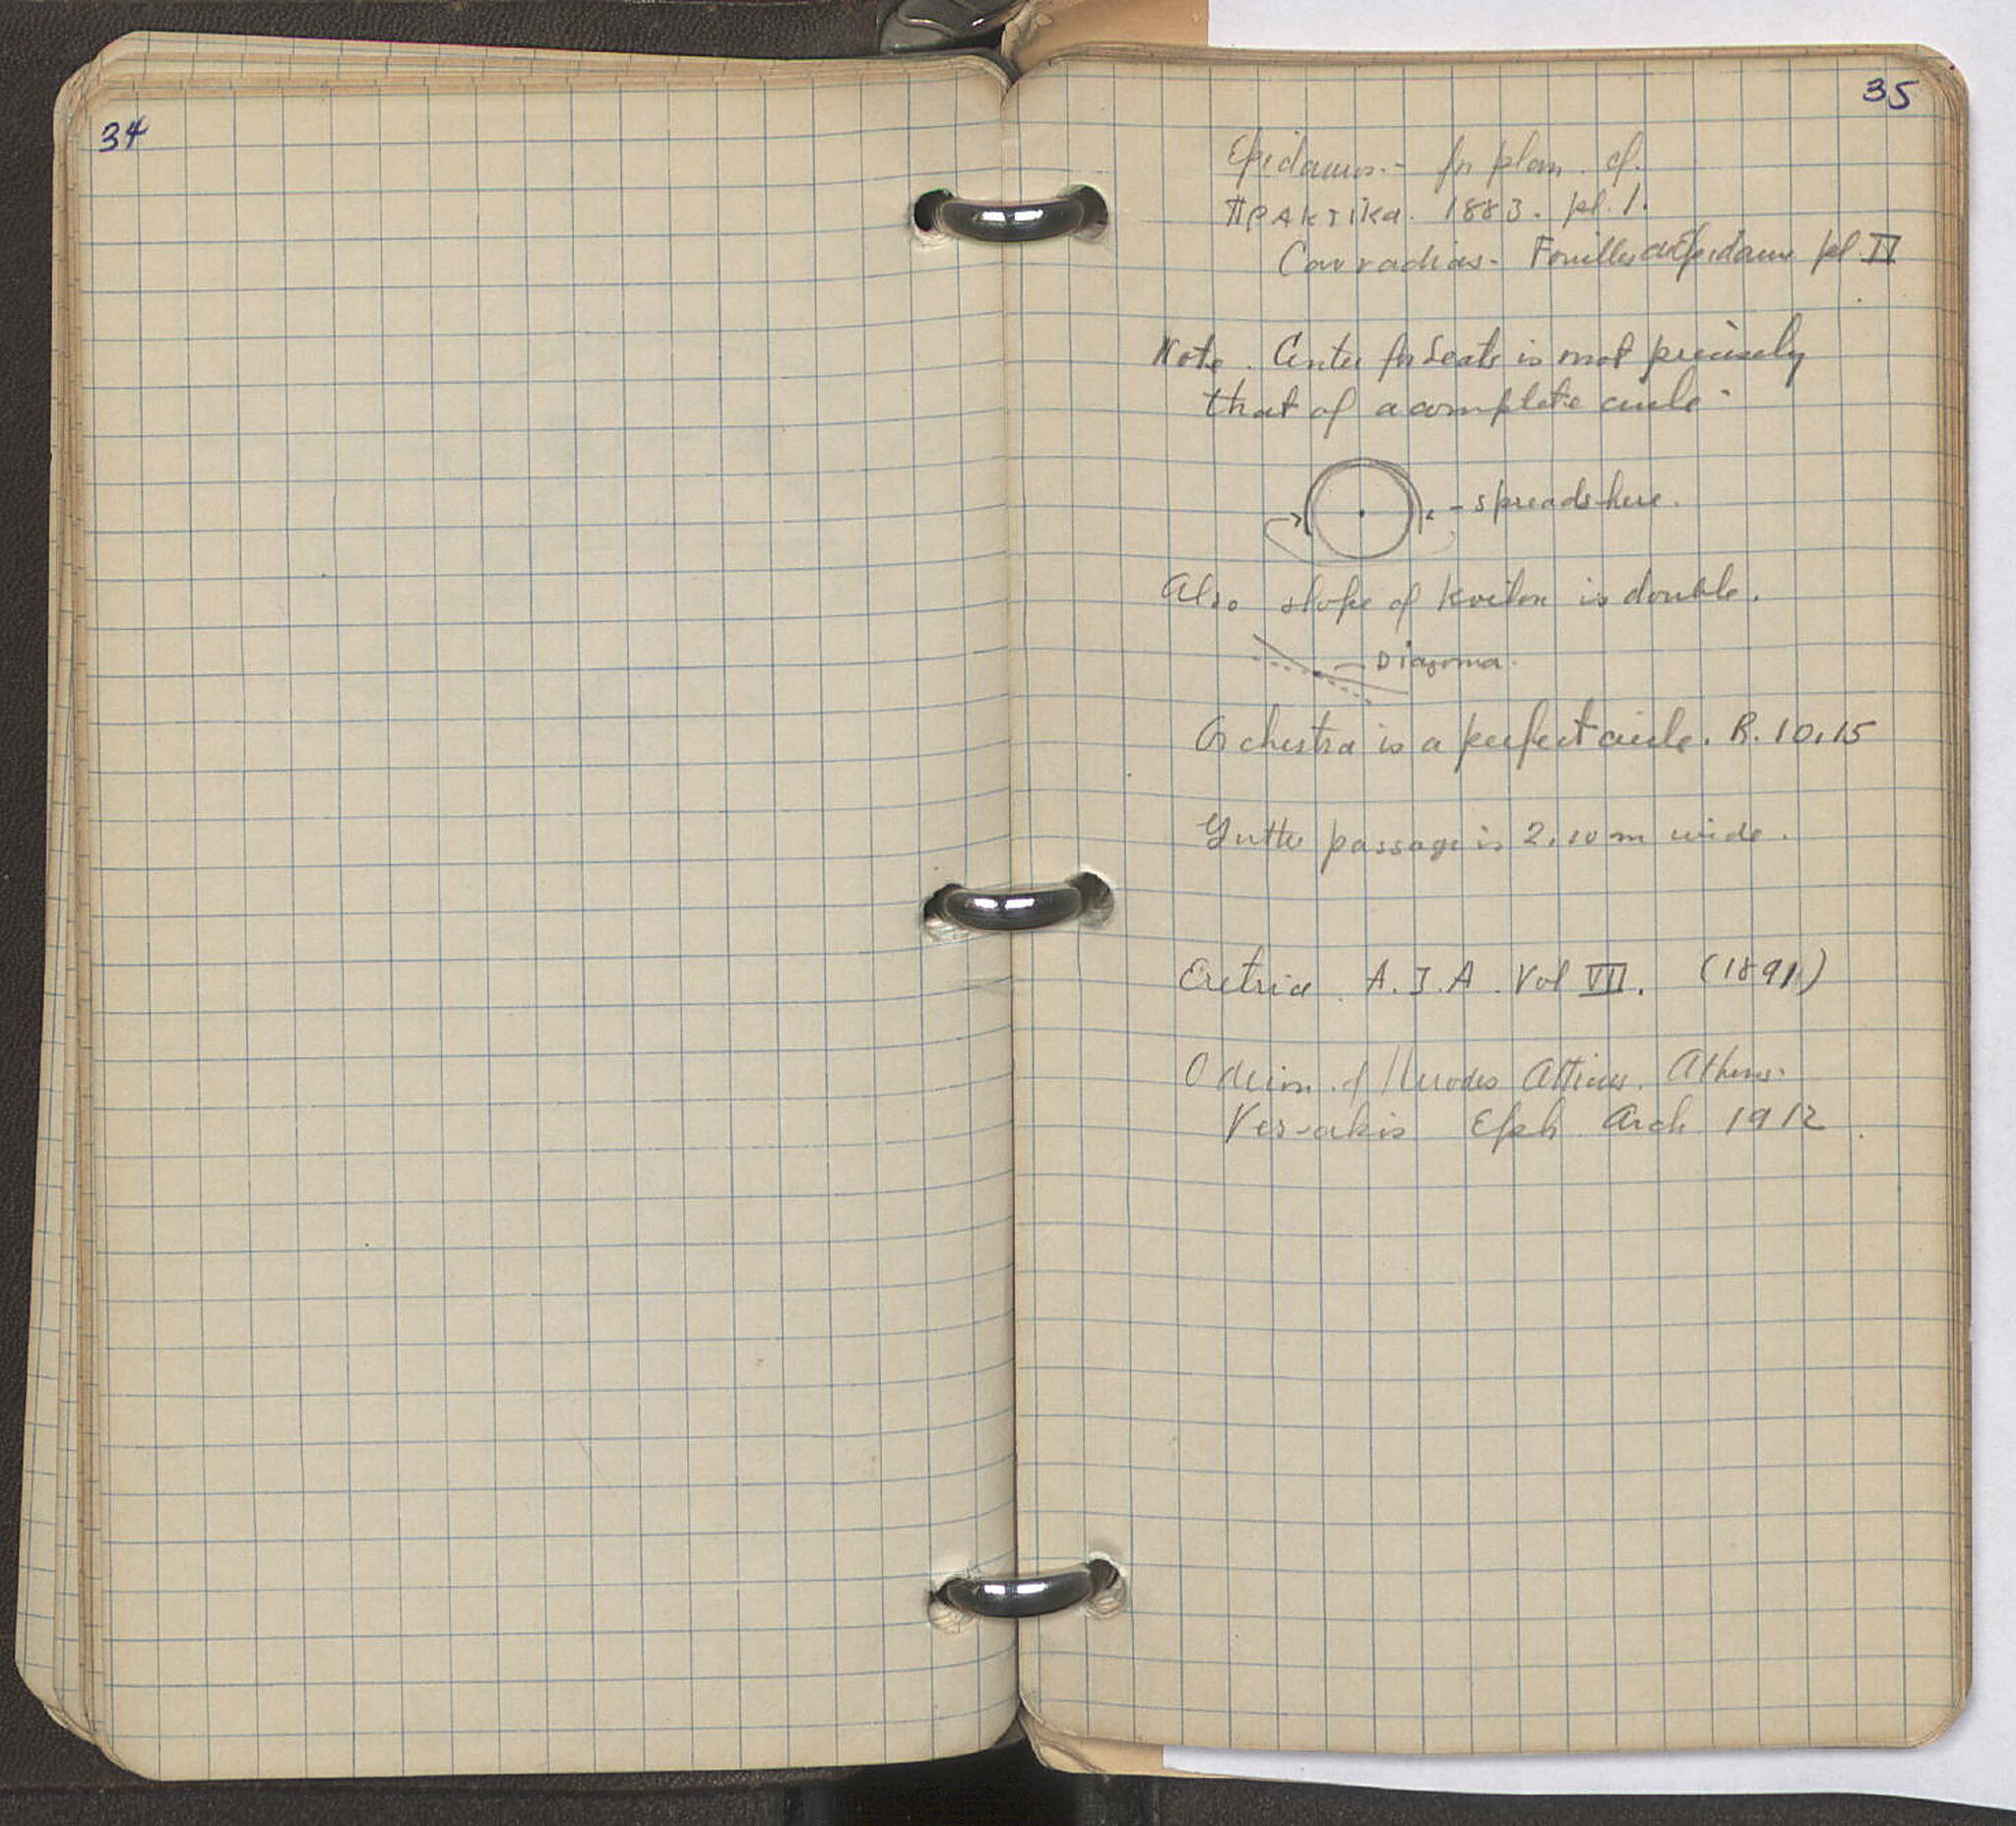 34
35
Epidaurus. - for plan. cf.
ΠΡΑΚΤΙΚα. 1883. pl. 1.
Cavvadias - Fouilles d'Epidaure pl. IV
Note. Center for Seats is not precisely
that of a complete circle.
- spreads here.
Also slope of Koilon is double.
Diazoma.
Orchestra is a perfect circle. R. 10.15
Gutter passage is 2.10 m wide.
Eretria. A.J.A. Vol VII. (1891)
Odeion of Herodes Atticus. Athens.
Versakis Eph. Arch 1912